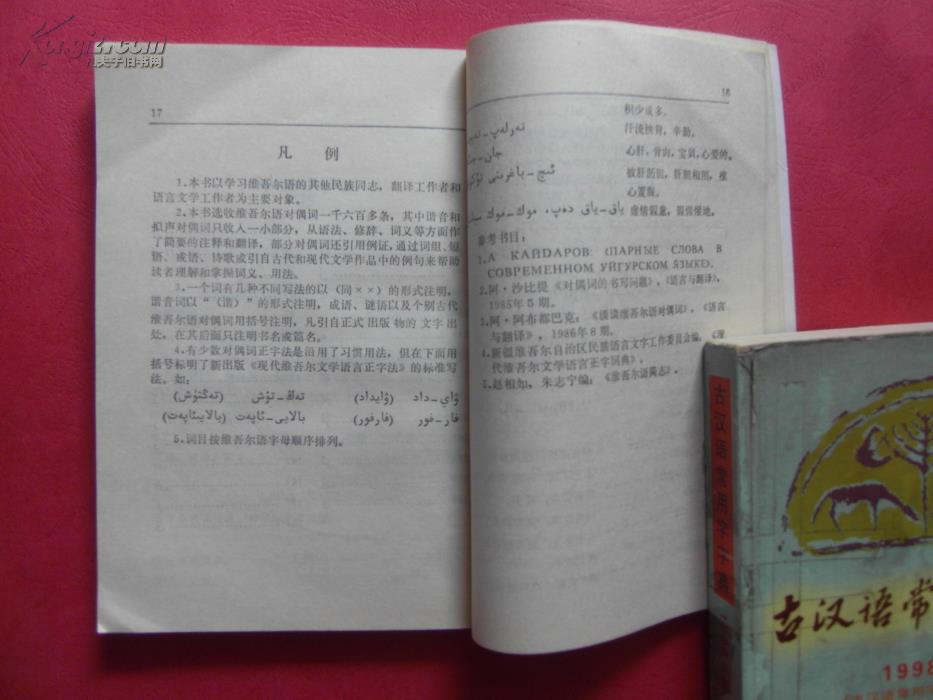 孔夫子旧书网
17
凡 例
1.本书以学习维吾尔语的其他民族同志，翻译工作者和
语言文学工作者为主要对象。
2.本书选收维吾尔语对偶词一千六百多条，其中谐音和
拟声对偶词只收入一小部分，从语法、修辞、词义等方面作
了简要的注释和翻译，部分对偶词还引用例证，通过词组、短
语、成语、诗歌或引自古代和现代文学作品中的例句来帮助
读者理解和掌握词义、用法。
3.一个词有几种不同写法的以（同××）的形式注明，
谐音词以“（谐）”的形式注明，成语、谜语以及个别古代
维吾尔语对偶词用括号注明，凡引自正式出版物的文字出
处，在其后面只注明书名或篇名。
4.有少数对偶词正字法是沿用了习惯用法，但在下面用
括号标明了新出版《现代维吾尔文学语言正字法》的标准写
法。如：
ۋاي-داد (ۋايداد) تەڭ-تۇش (تەڭتۇش)
فار-فور (فارفور) بالايى-ئاپەت (بالايىئاپەت)
5.词目按维吾尔语字母顺序排列。
16
积少成多。
تەرلەپ-تەپ
汗流挟背，辛勤。
جان-
心肝，骨肉，宝贝，心爱的。
ئىچ-باغرىنى تۆك
披肝沥胆，肝胆相照，推
心置腹。
ياق-ياق دەپ، مۆك-مۆك
虚情假意，假惺惺地。
参考书目：
1.А КАЙДАРОВ：《ПАРНЫЕ СЛОВА В
СОВРЕМЕННОМ УЙГУРСКОМ ЯЗЫКЕ》。
2.阿·沙比提《对偶词的书写问题》，《语言与翻译》，
1985年5期。
3.阿·阿布都巴克：《谈谈维吾尔语对偶词》，《语言
与翻译》，1986年8期。
4.新疆维吾尔自治区民族语言文字工作委员会编，《现
代维吾尔文学语言正字词典》。
5.赵相如，朱志宁编：《维吾尔语简志》。
古汉语常用字字典
古汉语常
1998